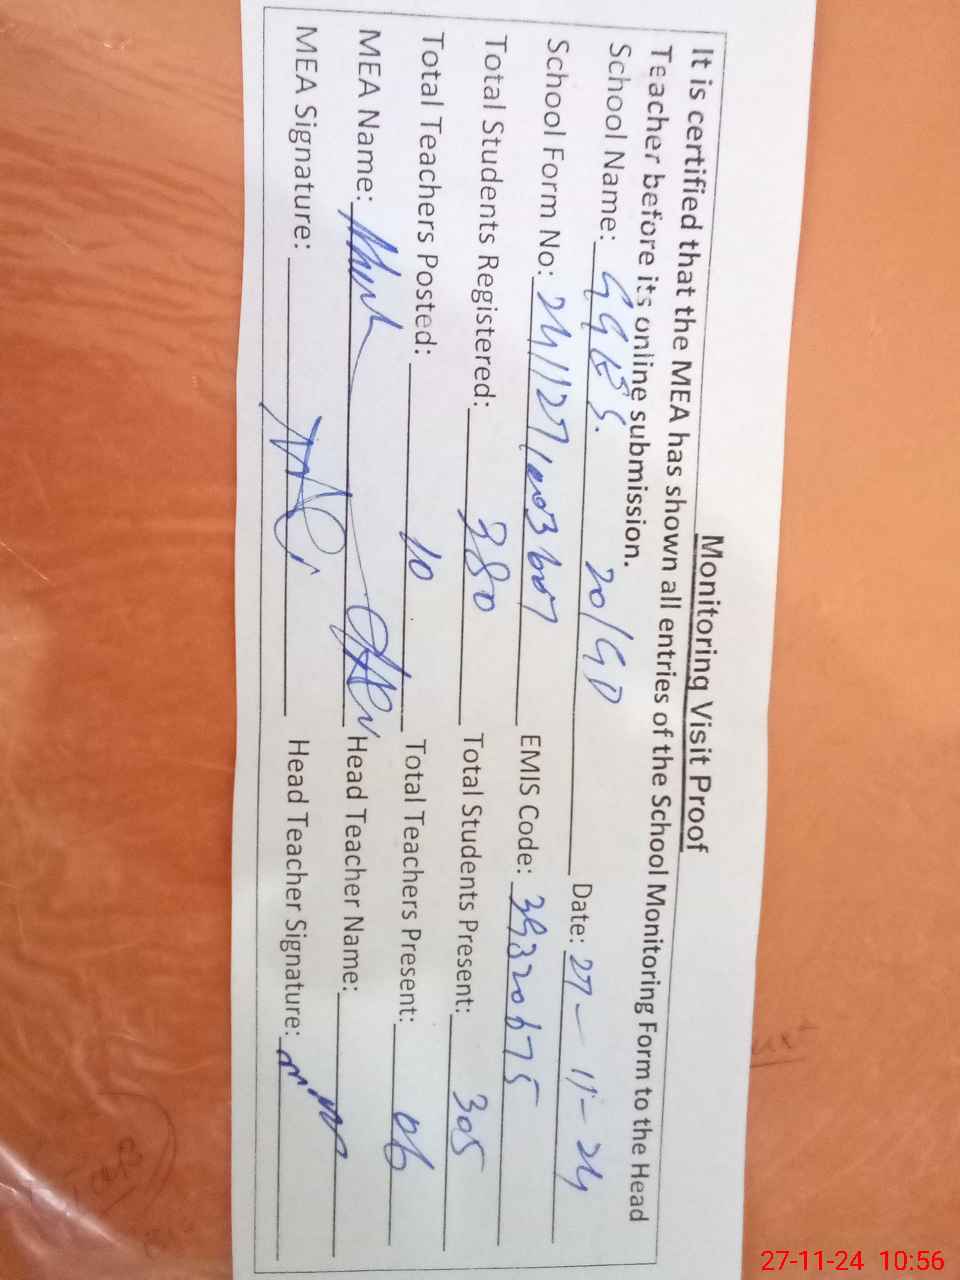 Monitoring Visit Proof
It is certified that the MEA has shown all entries of the School Monitoring Form to the Head
Teacher before its online submission.
School Name: GGES. 20/GD Date: 27-11-24
School Form No: EMIS Code: 39320675
Total Students Registered: 380 Total Students Present: 305
Total Teachers Posted: 10 Total Teachers Present: 06
MEA Name: Head Teacher Name:
MEA Signature: Head Teacher Signature:
27-11-24 10:56